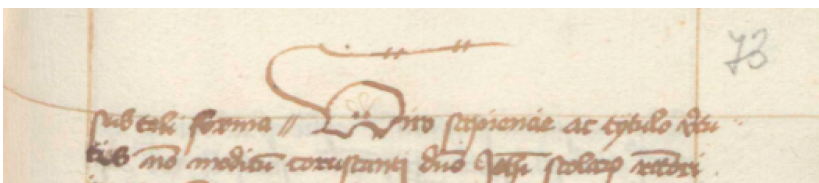 73
sub tali forma // Viro sapiencie ac tytulo v̾tu
tis nō modicū coruscanti dn̄o Joh̄i scolarꝝ rectori